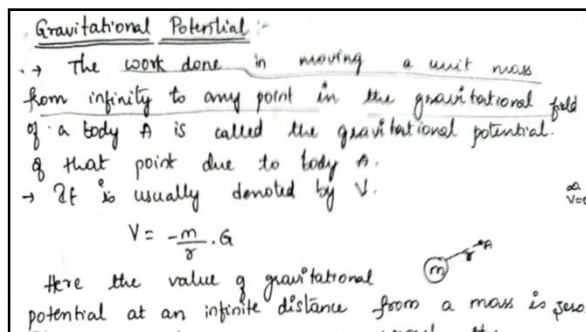 Gravitational Potential :-
.→ The work done in moving a unit mass
from infinity to any point in the gravitational field
of a body A is called the gravitational potential.
of that point due to body A.
→ It is usually denoted by V.
∞
V=
V = -m/r . G
A
r
m
Here the value of gravitational
potential at an infinite distance from a mass is zero